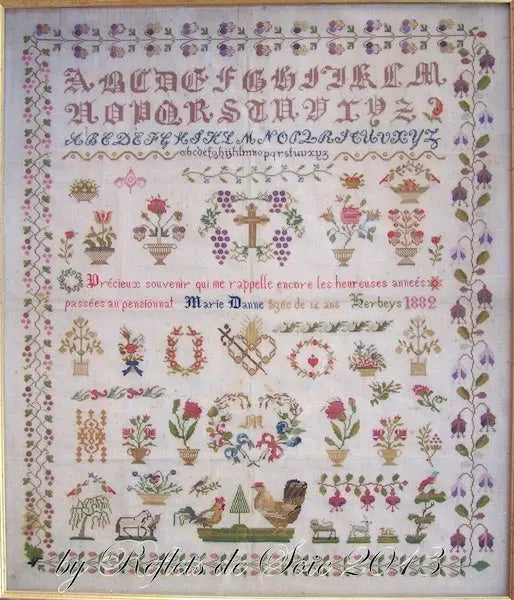 A B C D E F G H I J K L M
N O P Q R S T U V X Y Z
A B C D E F G H I J K L M N O P Q R S T U V X Y Z
a b c d e f g h i j k l m n o p q r s t u v x y z
Précieux souvenir qui me rappelle encore les heureuses années
passées au pensionnat Marie Danne âgée de 14 ans Herbeys 1882
M
by Reflets de Soie 2013